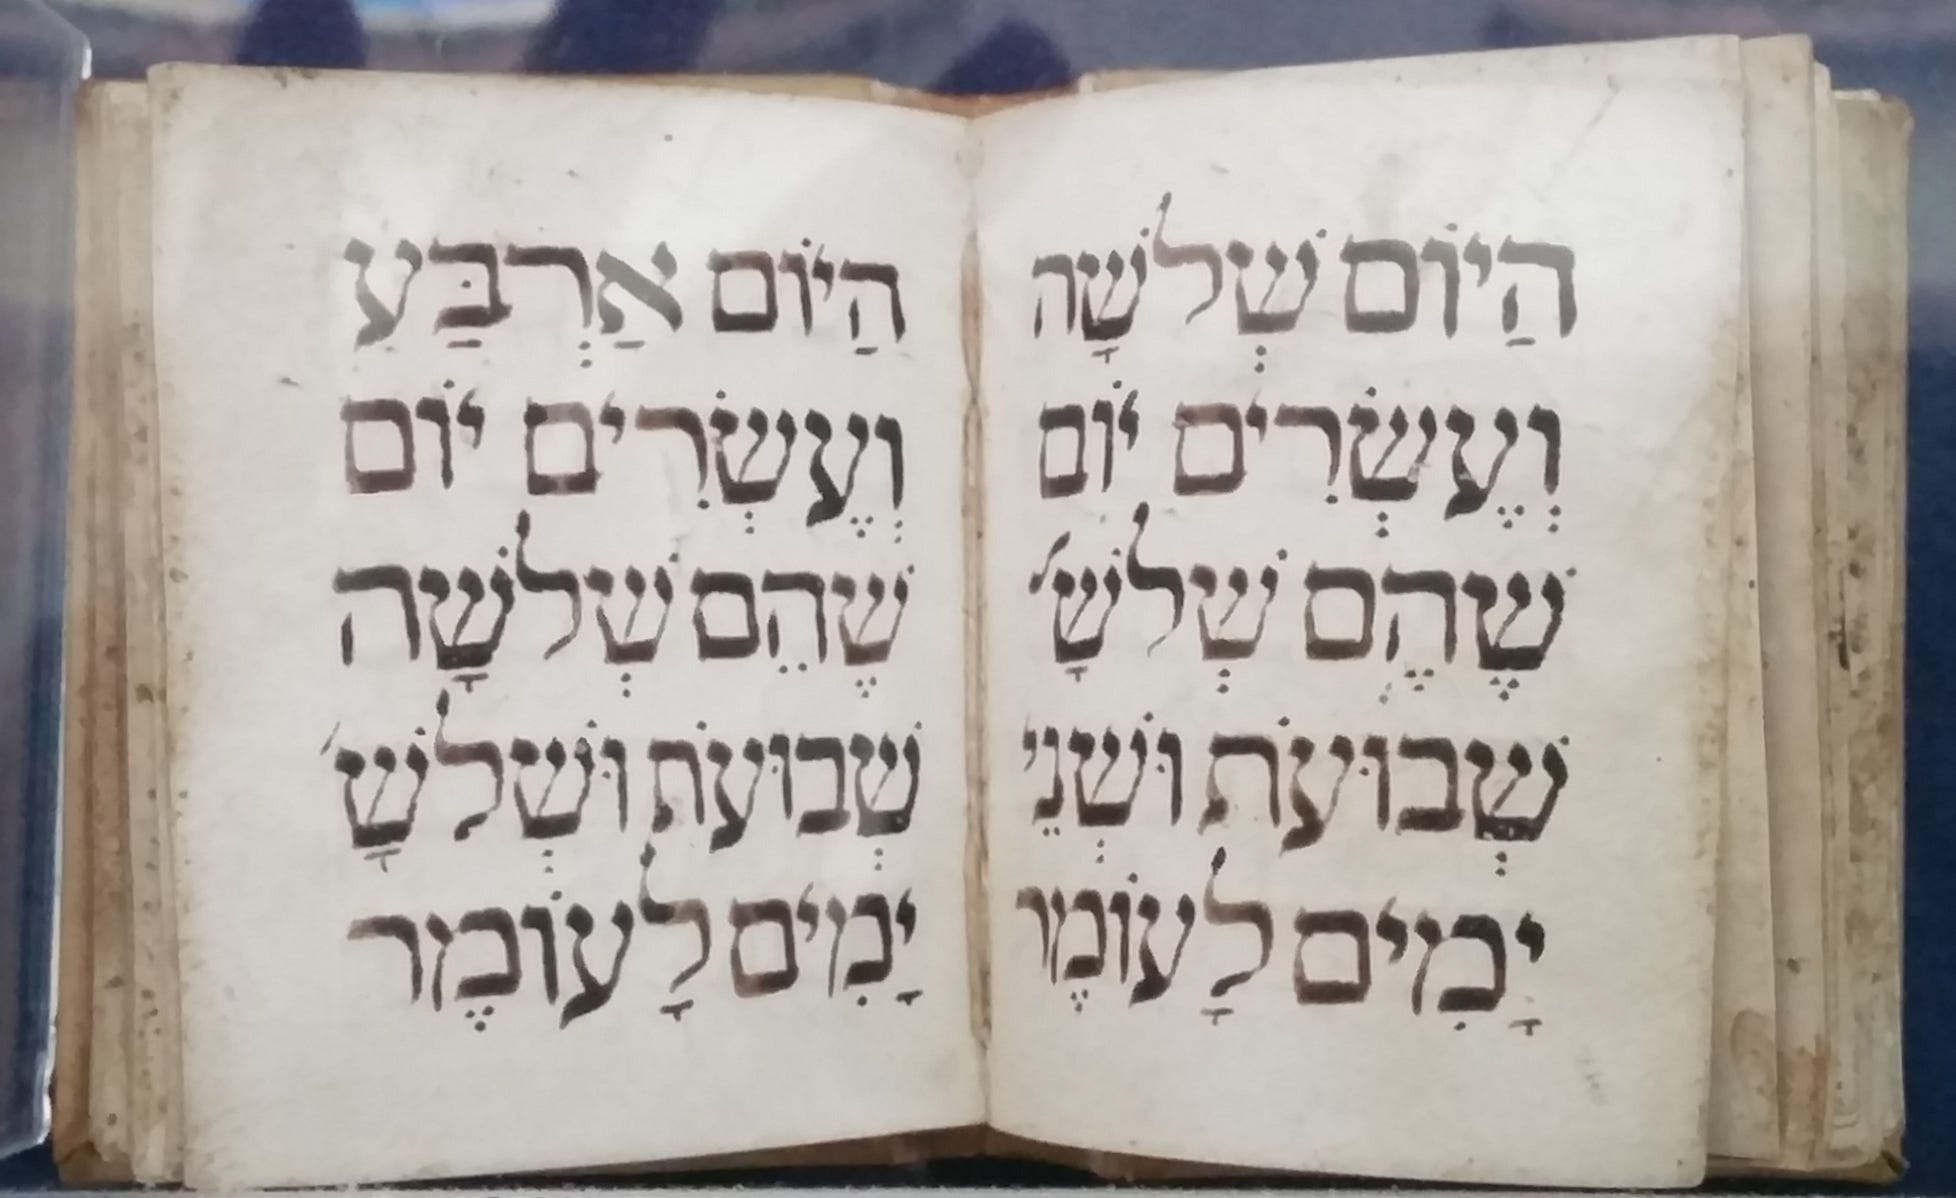 הַיּוֹם שְׁלשָׁה
וְעֶשְׂרִים יוֹם
שֶׁהֶם שְׁלשָׁ׳
שְׁבוּעֹת וּשְׁנֵי
יָמִים לָעוֹמֶר
הַיּוֹם אַרְבַּע
וְעֶשְׂרִים יוֹם
שֶׁהֵם שְׁלשָׁה
שְׁבוּעֹת וּשְׁלשָׁ׳
יָמִים לָעוֹמֶר